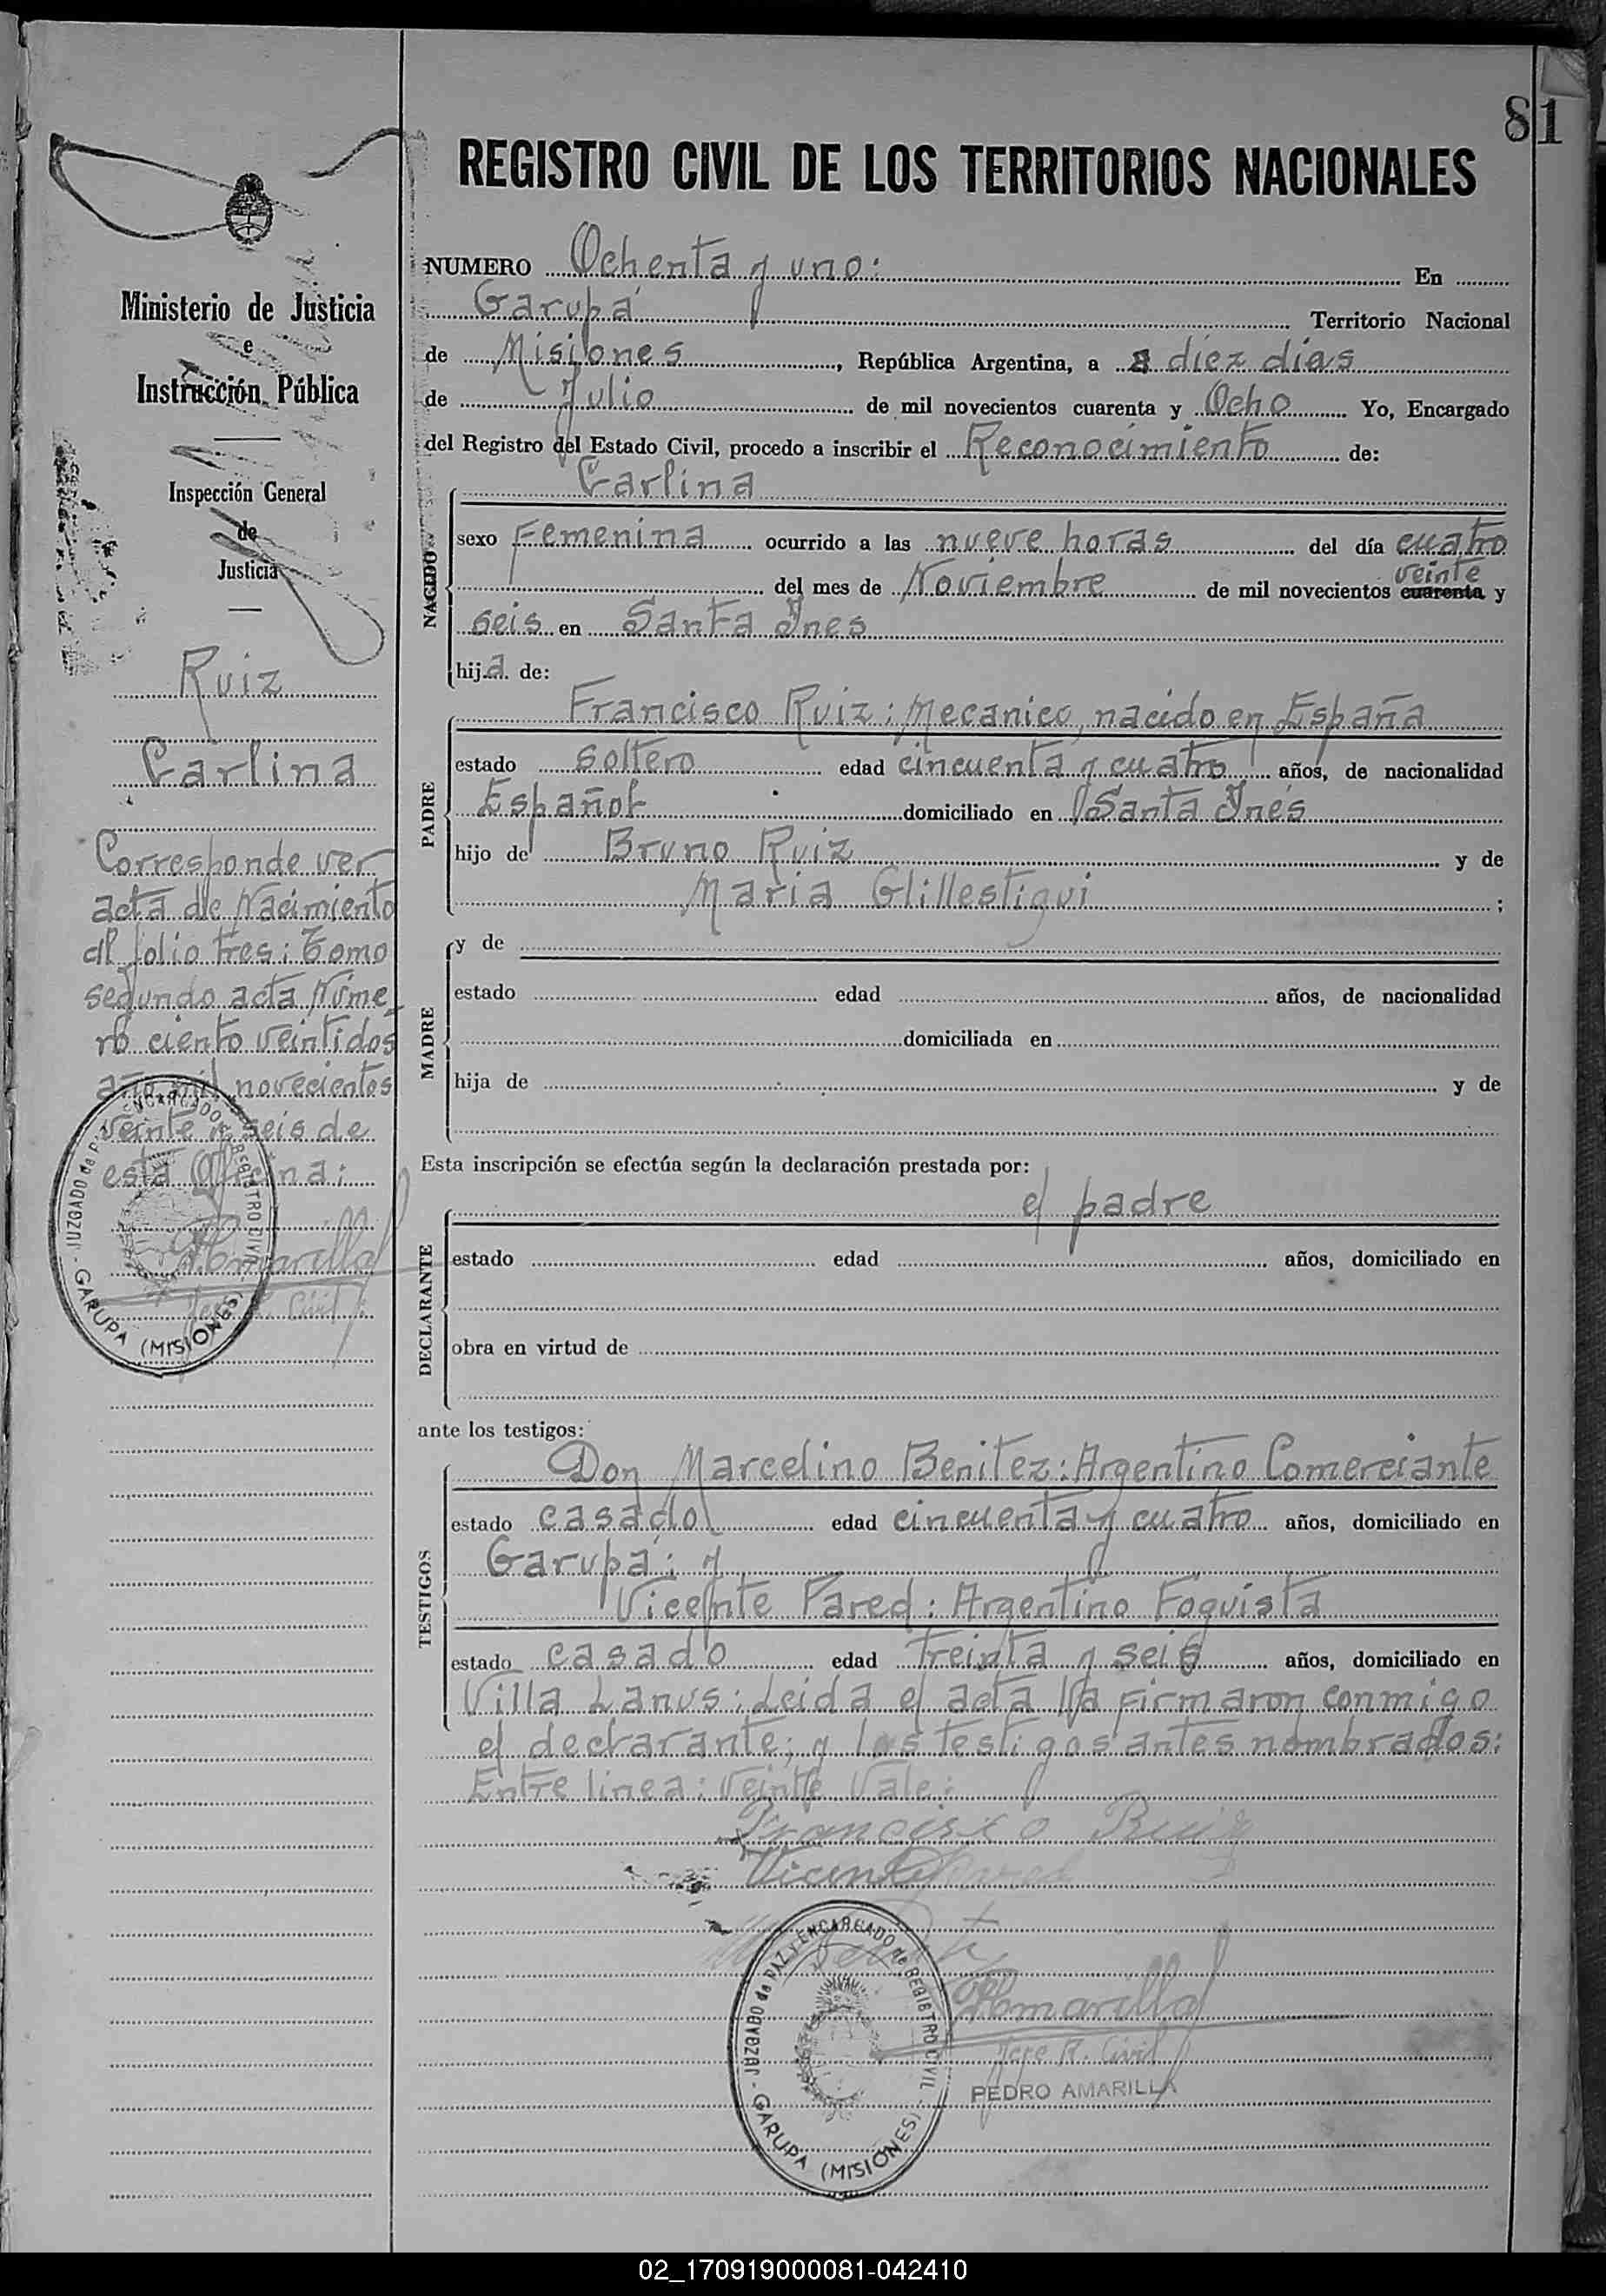 81
REGISTRO CIVIL DE LOS TERRITORIOS NACIONALES
Ministerio de Justicia
e
Instrucción Pública
Inspección General
de
Justicia
Ruiz
Carlina
Corresponde ver
acta de Nacimiento
al folio tres: Tomo
segundo acta Núme-
ro ciento veintidos
año mil novecientos
veinte y seis de
esta Oficina:
PAmarilla
Jefe R. Civil
JUZGADO de PAZ y ENCARGADO de REGISTRO CIVIL - GARUPA (MISIONES)
NUMERO Ochenta y uno: En
Garupá Territorio Nacional
de Misiones, República Argentina, a diez dias
de Julio de mil novecientos cuarenta y Ocho Yo, Encargado
del Registro del Estado Civil, procedo a inscribir el Reconocimiento de:
NACIDO
Carlina
sexo Femenina ocurrido a las nueve horas del día cuatro
veinte
del mes de Noviembre de mil novecientos cuarenta y
seis en Santa Ines
hija de:
PADRE
Francisco Ruiz: Mecanico, nacido en España
estado soltero edad cincuenta y cuatro años, de nacionalidad
Español domiciliado en Santa Inés
hijo de Bruno Ruiz y de
Maria Glillestigui;
MADRE
y de
estado edad años, de nacionalidad
domiciliada en
hija de y de
Esta inscripción se efectúa según la declaración prestada por:
DECLARANTE
el padre
estado edad años, domiciliado en
obra en virtud de
ante los testigos:
TESTIGOS
Don Marcelino Benitez: Argentino Comerciante
estado casado edad cincuenta y cuatro años, domiciliado en
Garupá: y
Vicente Pared: Argentino Foguista
estado casado edad treinta y seis años, domiciliado en
Villa Lanus: Leida el acta la firmaron conmigo
el declarante; y los testigos antes nombrados:
Entre linea: Veinte Vale:
Francisco Ruiz
Vicente Pared
JUZGADO de PAZ y ENCARGADO de REGISTRO CIVIL - GARUPA (MISIONES)
PAmarilla
Jefe R. Civil
PEDRO AMARILLA
02_170919000081-042410